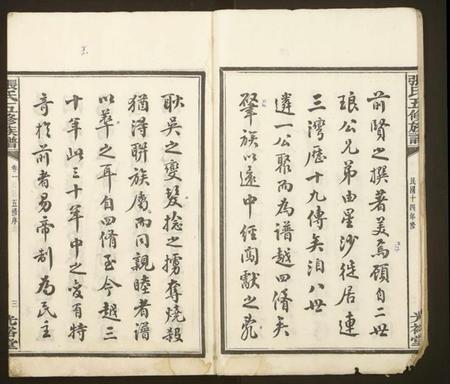 張氏五修族譜
民國十四年修
光裕堂
前賢之撰著美焉顧自二世
琅公兄弟由星沙徙居連
三灣歷十九傳矣洎八世
遴一公聚而為譜越四脩矣
肇族以遠中經闖獻之亮
耿吳之變髮捻之擄奪燒殺
猶得聯族屬而同親睦者譜
以萃之耳自四脩至今越三
十年此三十年中之变有特
奇於前者易帝制為民主
張氏五修族譜
卷一
五修序
三
光裕堂